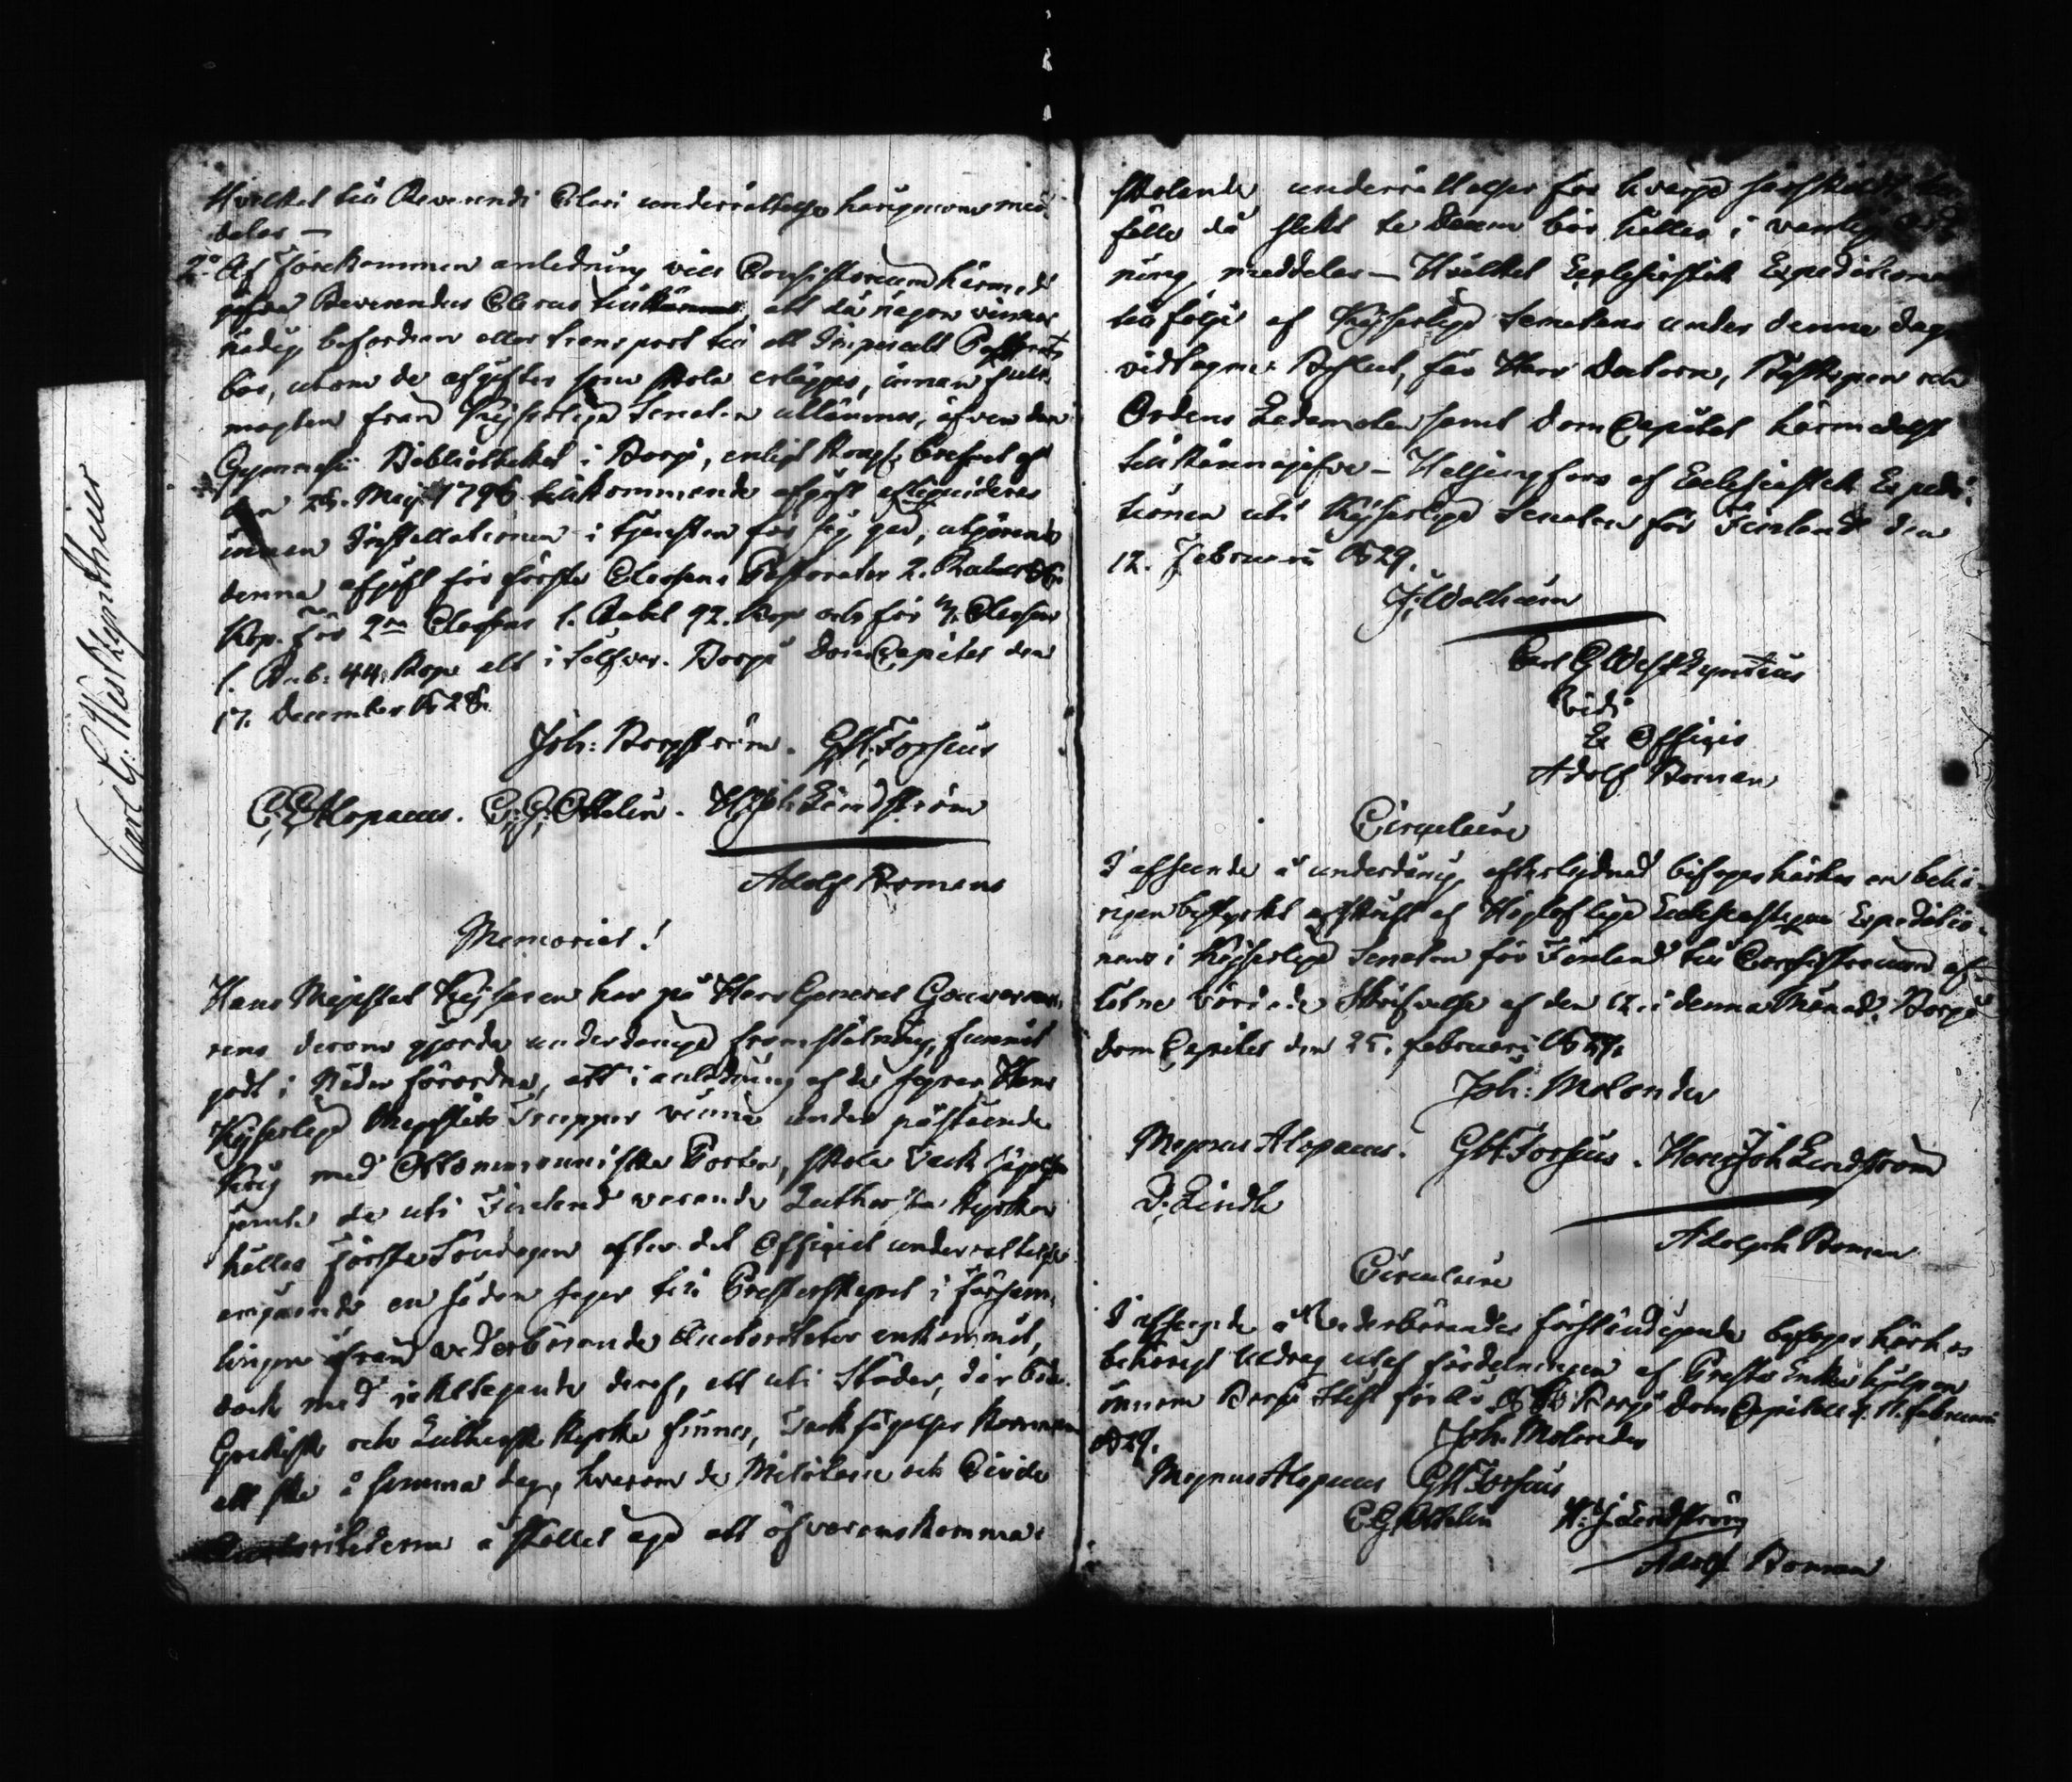 Hvilket till Reverendi Cleri underrättelse härigenom med-
delas —
2o Af förekommen anledning vill Consistorium härmed
gifva Reverendus Clerus tillkänna, att då någon vinner
nådig befordran eller transport till ett Imperielt Pastorat
bör, utom de afgifter som skola erläggas, innan full-
magten från Kejserliga Senaten utlämnas, äfven den
Gymnasii Bibliotheket i Borgå, enligt Kongl. brefvet af
den 25. Maji 1796 tillkommande afgift afliqvideras
innan Installationen i tjensten för sig går, utgörande
denna afgift för första Classens Pastorater 2. Rubel 88.
Kop. För 2ra Classens 1. Rubel 92. Kop och för 3. Classen
1. Rub: 44. Kop. allt i Silfver. Borgå DomCapitel den
17. December 1828.
Joh: Borgström. G. H. Forsius
C. Alopaeus. C. G. Ottelin. H. Joh Lindström
Adolf Roman
Memorial!
Hans Majestät Kejsaren har på Herr General Gouverneu-
rens derom gjorda underdåniga framställning, funnit
godt i Nåder förordna, att i anledning af de segrar Hans
Kejserliga Majestäts Trupper vinna under påstående
krig med Ottomanniska Porten, skola Tacksägelser
jemte de uti Finland varande Lutherska kyrkor
hållas förste Söndagen efter det Officiel underrättelse
angående en sådan seger till Presterskapet i församl-
lingen ifrån vederbörande Auctoriteter ankommit,
dock med iakttagande deraf, att uti Städer, der både
Grekisk och Luthersk kyrka finnes, Tacksägelser komma
att ske å samma dag, hvarom de Militaire och Civila
Auctoriteterna å stället ega att öfverenskomma.
skolande underrättelser för hvarje särskildt till
fälle då slikt te Deum bör hållas i vanlig ord-
ning meddelas — Hvilket Ecclesiastik Expeditionen
till följe af Kejserliga Senatens under denna dag
vidtagne Beslut, får Herr Doctorn, Biskopen och
Ordens Ledamoten samt DomCapitel härmedelst
tillkännagifva — Helsingfors af Ecclesiastik Expedi-
tionen uti Kejserliga Senaten för Finland den
12. Februarii 1829.
J. Walheim
Carl G West Zynthius
Vidi
Ex Officio
Adolf Roman
Circulaire
I afseende å underdånig efterlydnad bifogas härhos en behö-
rigen bestyrkt afskrift af Högloflige Ecclesiastique Expeditio-
nens i Kejserliga Senaten för Finland till Consistorium af-
låtne vördade Skrifvelse af den 12. i denna Månad. Borgå
DomCapitel den 25. februari 1829.
Joh: Molander
Magnus Alopaeus. G H Forsius. Henr Joh Lindström
D. Lindh
Adolph Roman
Circulaire
I afseende å Vederbörandes förständigande bifogas härhos
behörigt Utdrag utaf fördelningen af Preste Enkehjelpen
innom Borgå Stift för år 1828. Borgå DomCapitel d. 11. februarii
1829.
Joh. Molander
Magnus Alopaeus G H Forsius
C G Ottelin H. J. Lindström
Adolf Roman
Carl G: West Zynthius